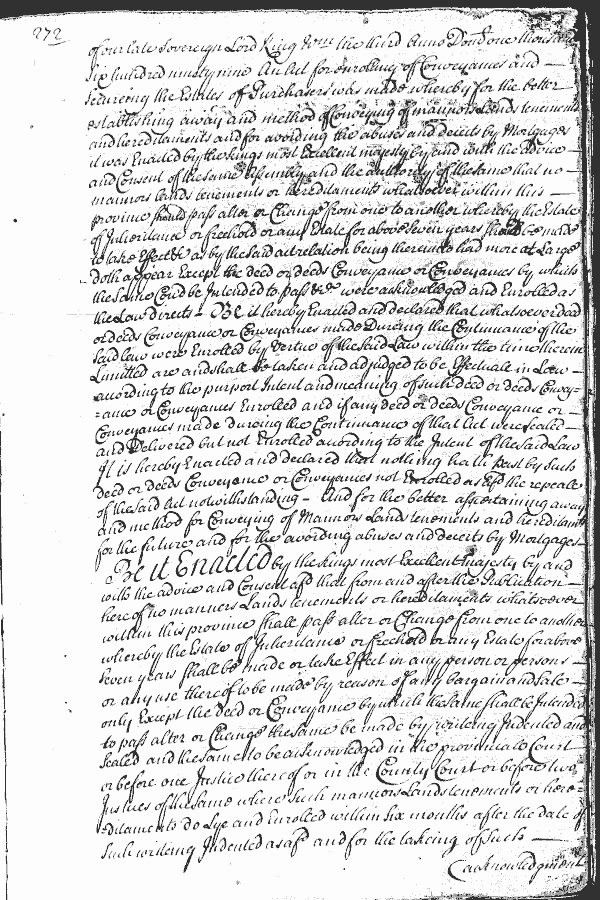 272
of our late Sovereign Lord King Wm the third Anno Dom one thousand
six hundred ninety nine An Act for enrolling of Conveyances and
secureing the Estates of Purchasers was made whereby for the better
establishing a way and method of Conveying of mannors Lands tenements
and hereditaments and for avoiding the abuses and deceits by Mortgages
it was Enacted by the kings most Excellent majesty by and with the Advice
and Consent of the same Assembly and the authority of the same that no
mannors lands tenements or hereditaments whatsoever within this
province should pass alter or Change from one to another whereby the Estate
of Inheritance or freehold or any Estate for above seven years should be made
to take Effect &c as by the said act relation being thereunto had more at Large
doth appear Except the deed or deeds Conveyance or Conveyances by which
the same Could be Intended to pass &c were acknowledged and Enrolled as
the Law directs - Be it hereby Enacted and declared that whatsoever deed
or deeds Conveyance or Conveyances made Dureing the Continuance of the
said law were Enrolled by vertue of the said Law within the time therein
Limitted are and shall be taken and adjudged to be Effectuall in Law
according to the purport Intent and meaning of such deed or deeds Convey=
=ance or Conveyances Enrolled and if any deed or deeds Conveyance or
Conveyances made dureing the Continuance of that Act were sealed
and Delivered but not Enrolled according to the Intent of the said Law
It is hereby Enacted and declared that nothing hath past by such
deed or deeds Conveyance or Conveyances not Enrolled as afsd the repeale
of the said Act notwithstanding - And for the better ascertaining a way
and method for Conveying of Mannors Lands tenements and hereditamts
for the future and for the avoiding abuses and deceits by Mortgages
Be it Enacted by the kings most Excellent majesty by and
with the advice and Consent afsd that from and after the Publication
hereof no manners Lands tenements or hereditaments whatsoever
within this province shall pass alter or Change from one to another
whereby the Estate of Inheritance or freehold or any Estate for above
seven years shall be made or take Effect in any person or persons
or any use thereof to be made by reason of any bargain and sale
only Except the deed or Conveyance by which the same shall be Intended
to pass alter or Change the same be made by writeing Indented and
sealed and the same to be acknowledged in the provinciale Court
or before one Justice thereof or in the County Court or before two
Justices of the same where such mannors Lands tenements or here=
=editaments do Lye and Enrolled within six months after the date of
such writeing Indented as afsd and for the takeing of such
acknowledgment